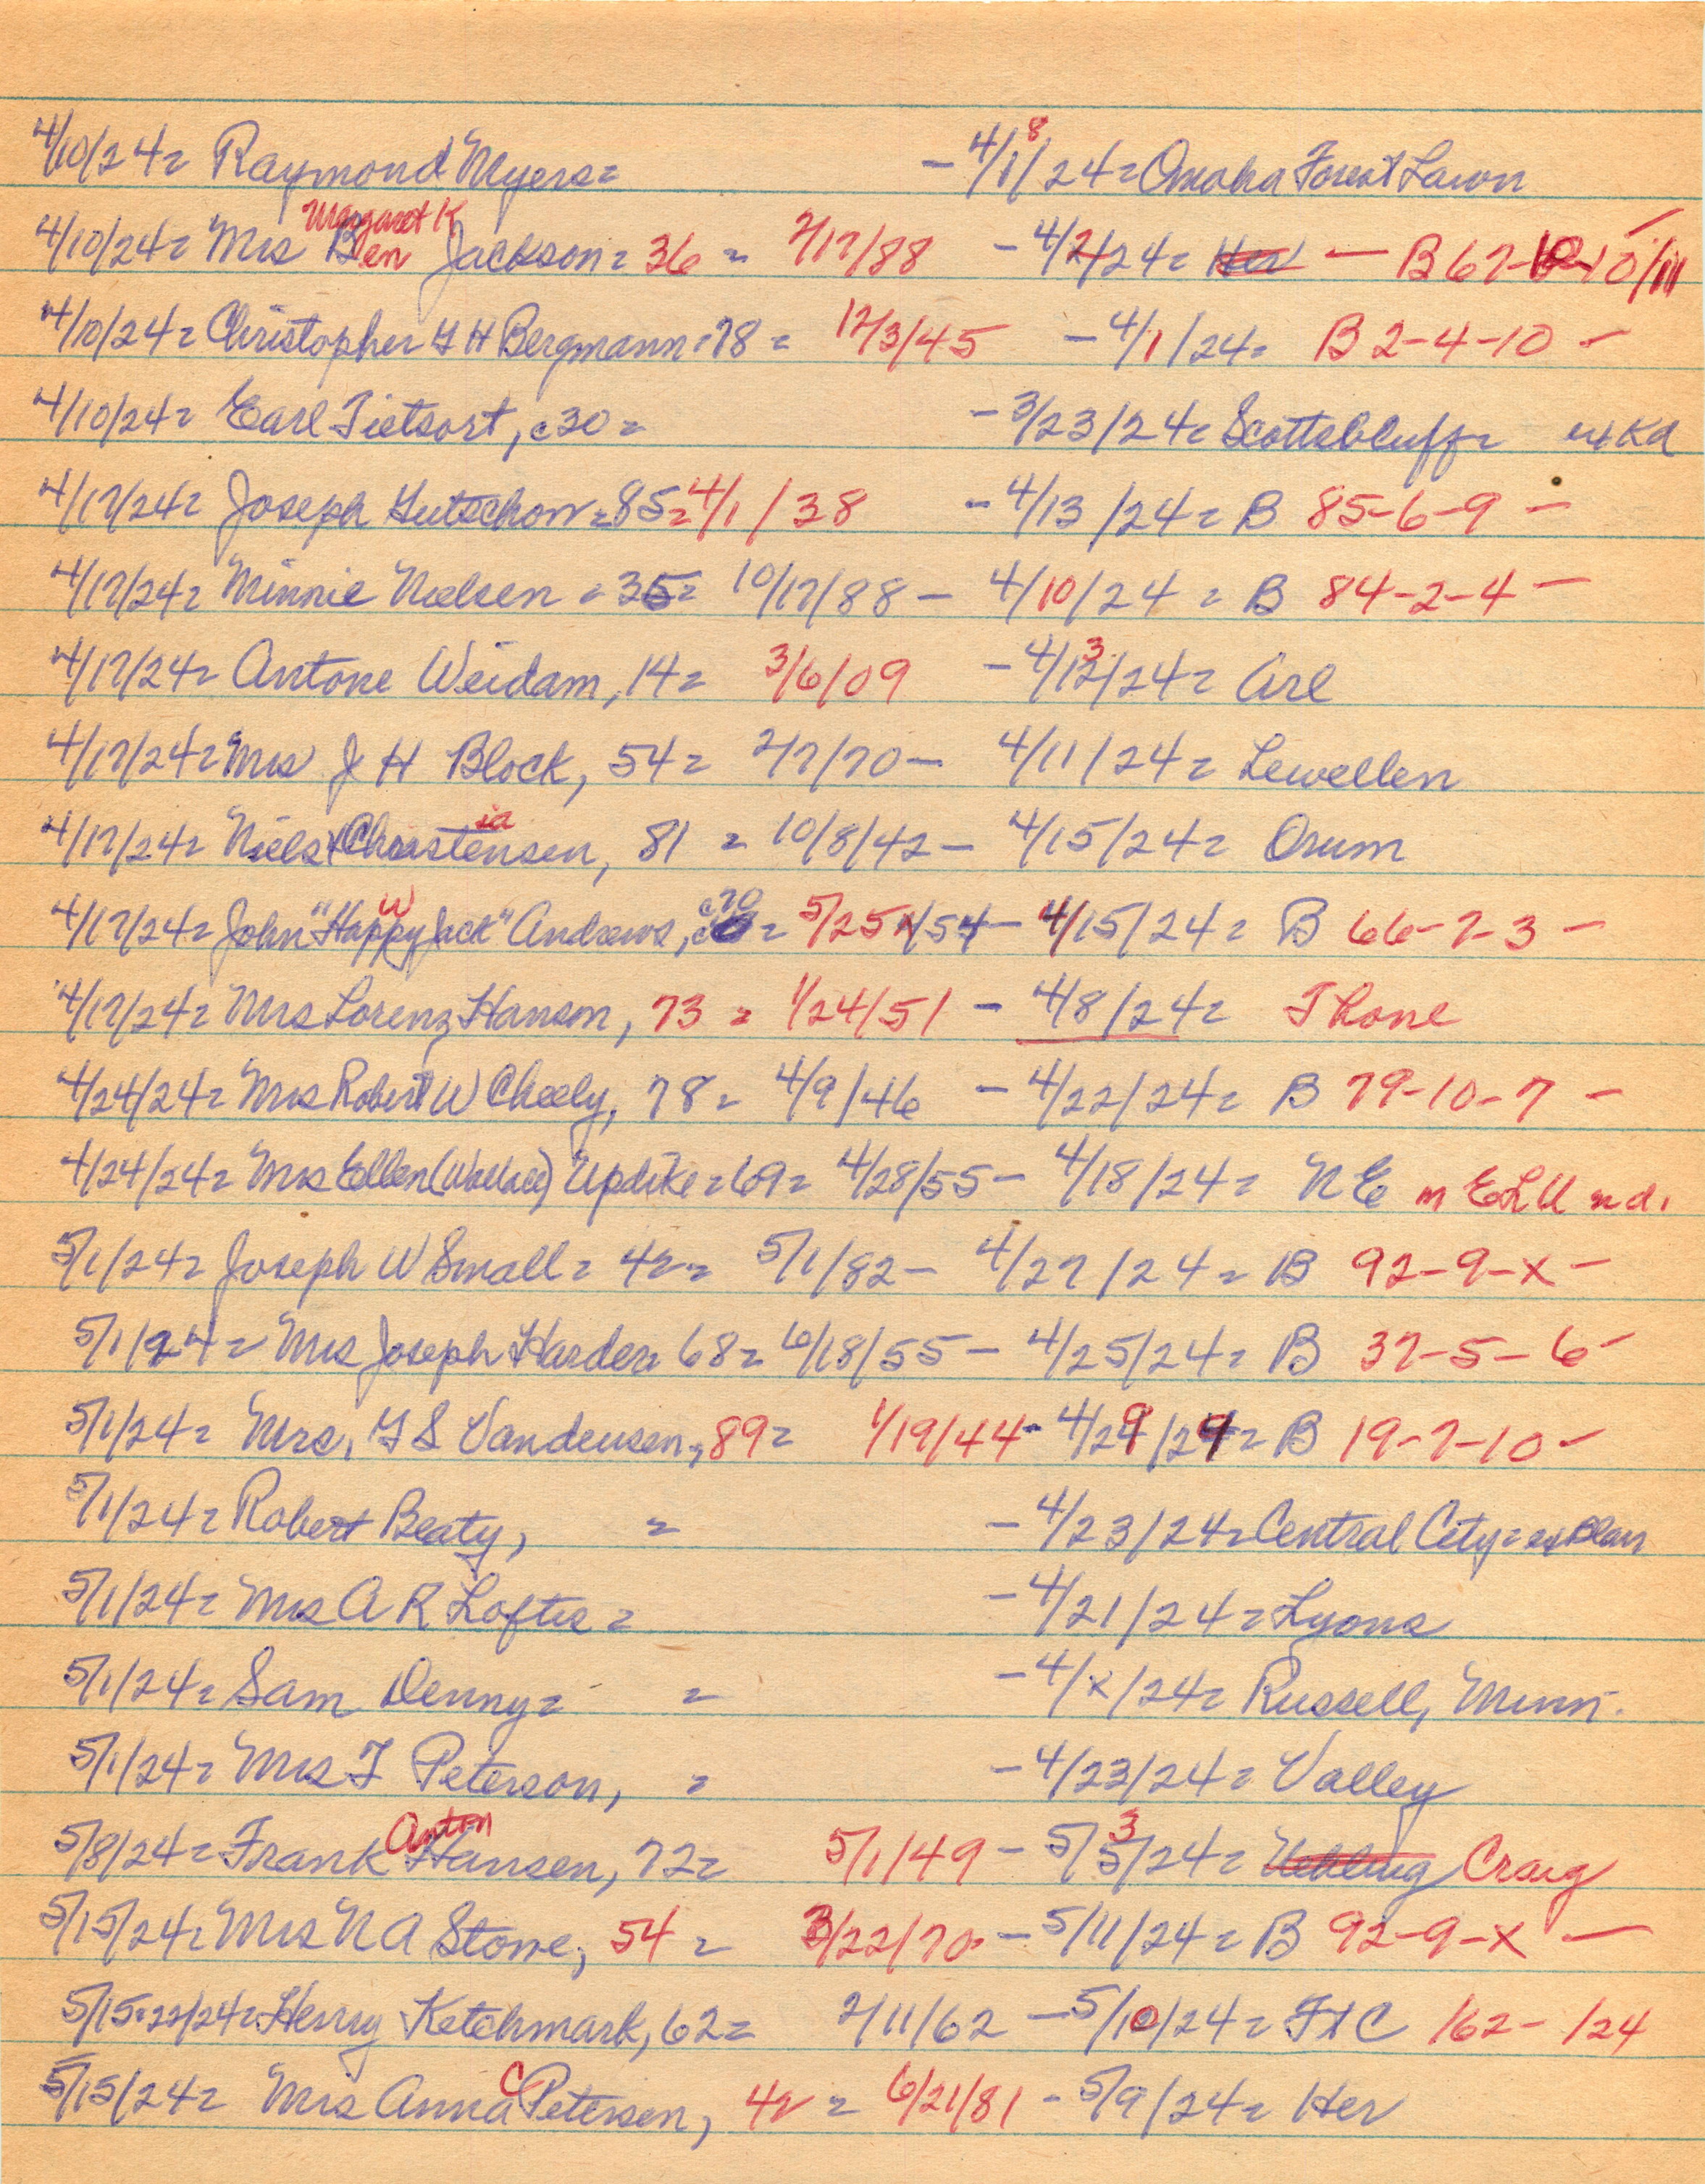 4/10/24= Raymond Myers= - 4/8/24= Omaha Forest Lawn
4/10/24= Mrs Ben Margaret K Jackson= 36 = 2/17/88 - 4/2/24= Her — B 67-10-10/11
4/10/24= Christopher G H Bergmann=78= 12/3/45 - 4/1/24= B 2-4-10 -
4/10/24= Earl Tietsort, c30= - 3/23/24= Scottsbluff=
4/17/24= Joseph Gutschow=85= 4/1/38 - 4/13/24= B 85-6-9 -
4/17/24= Minnie Nielsen = 35= 10/17/88 - 4/10/24 = B 84-2-4 -
4/17/24= Antone Weidam, 14= 3/6/09 - 4/13/24= Arl
4/17/24= Mrs J H Block, 54= 2/7/70 - 4/11/24= Lewellen
4/17/24= Niels Christensen, 81 = 10/8/42 - 4/15/24= Orum
4/17/24= John W "Happy Jack" Andrews, c70 = 5/25/54 - 4/15/24= B 66-7-3 -
4/17/24= Mrs Lorenz Hanson, 73 = 1/24/51 - 4/8/24= Thone
4/24/24= Mrs Robert W Cheely, 78= 4/9/46 - 4/22/24= B 79-10-7 -
4/24/24= Mrs Ellen (Wallace) Updike=69= 4/28/55 - 4/18/24= NE m ELU nd.
5/1/24= Joseph W Small= 42= 5/1/82 - 4/27/24= B 92-9-x -
5/1/24= Mrs Joseph Harder= 68= 6/18/55 - 4/25/24= B 37-5-6 -
5/1/24= Mrs. G S Vandeusen, 89= 1/19/44 - 4/29/24= B 19-7-10 -
5/1/24= Robert Beaty, = - 4/23/24= Central City= ex Blair
5/1/24= Mrs A R Loftis= - 4/21/24= Lyons
5/1/24= Sam Denny= = - 4/x/24= Russell, Minn.
5/1/24= Mrs F Peterson, = - 4/23/24= Valley
5/8/24= Frank Anton Hansen, 72= 5/1/49 - 5/3/24= Uehling Craig
5/15/24= Mrs N A Stowe, 54 = 3/22/70 - 5/11/24= B 92-9-x -
5/15=22/24= Henry Ketchmark, 62= 2/11/62 - 5/10/24= FtC 162- 124
5/15/24= Mrs Anna C Petersen, 42 = 6/21/81 - 5/9/24= Her